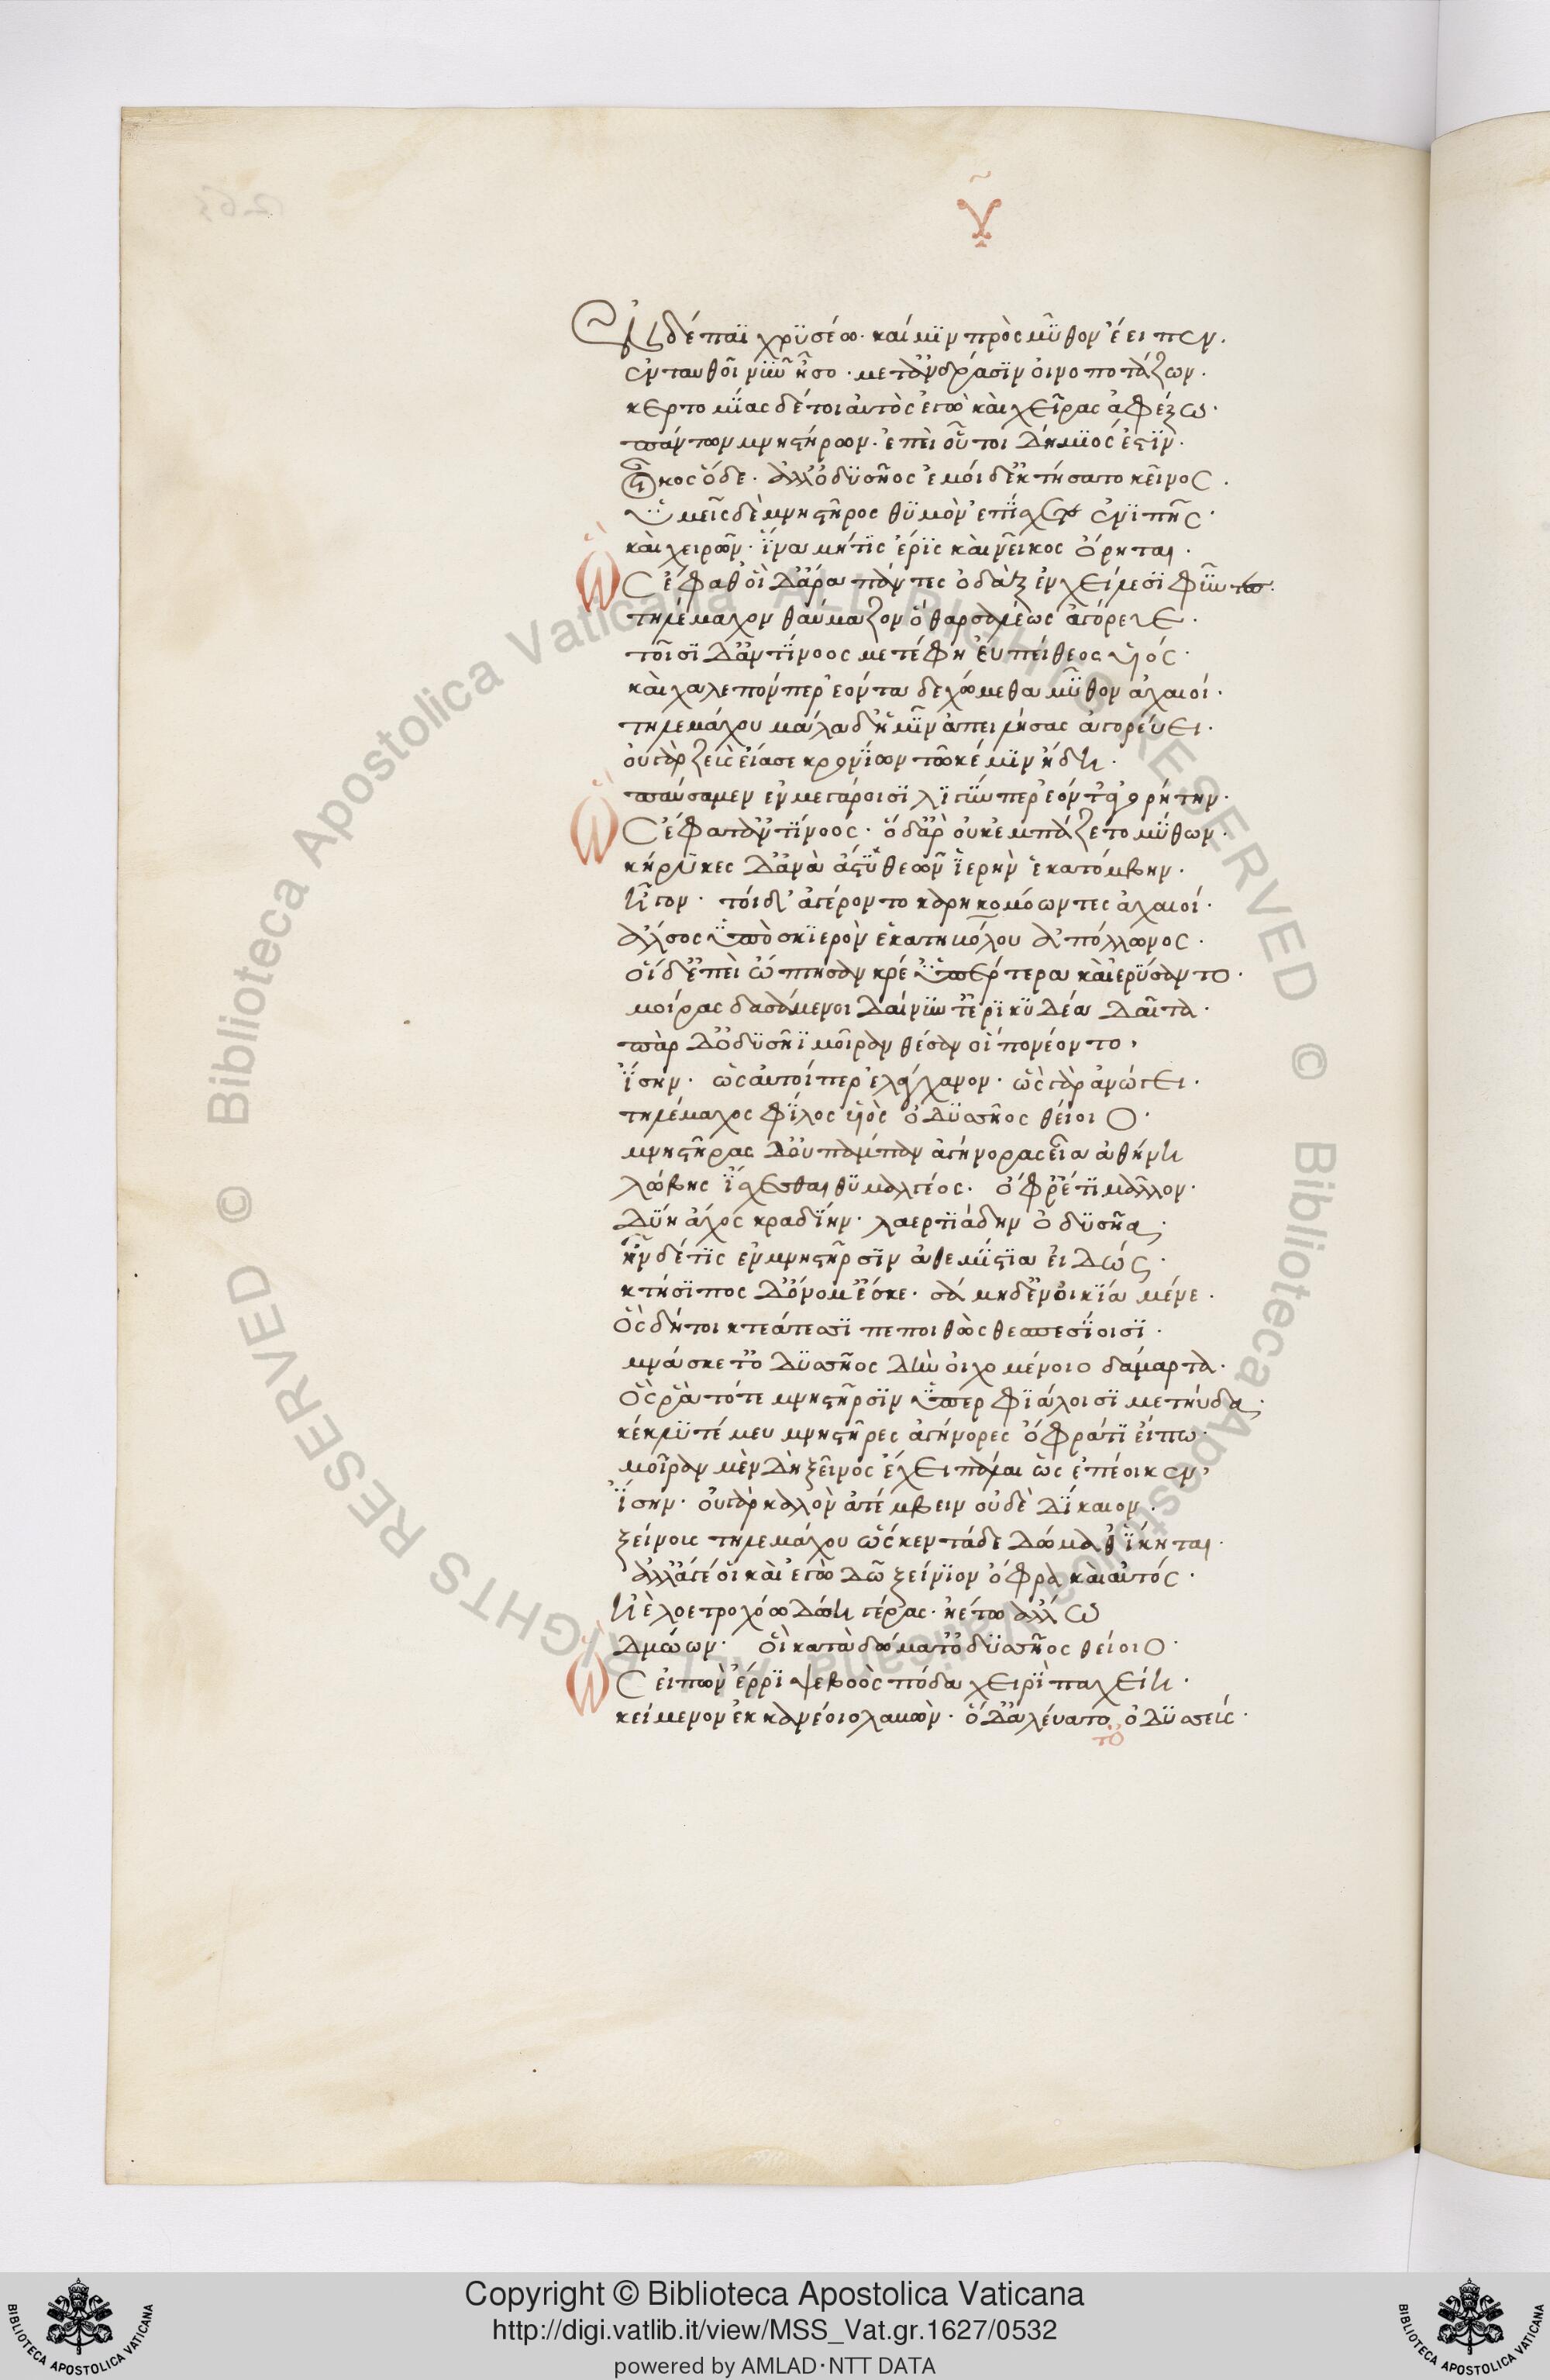 Υ
ἐν δέπαϊ χρϋσέω· καί μϊν πρὸς μῦθον ἔειπεν·
ἐνταυθοῖ νῦν ἧσο· μετ' ἀνδράσϊν οἰνοποτάζων·
κερτομίας δέ τοι αὐτὸς ἐγὼ καὶ χεῖρας ἀφέξω·
πάντων μνηστήρων· ἐπεὶ οὔτοι δήμιός ἐστϊν·
οἶκος ὅδε· ἀλλ' ὀδϋσῆος ἐμοὶ δ' ἐκτήσατο κεῖνος·
ὑμεῖς δὲ μνηστῆρος θϋμὸν ἐπίσχετε ἐνϊπῆς·
καὶ χειρῶν· ἵνα μήτις ἔρϊς καὶ νεῖκος ὄρηται·
ὣς ἔφαθ' οἳ δ' ἄρα πάντες ὀδὰξ ἐν χείλεσϊ φύντες·
τηλέμαχον θαύμαζον ὃ θαρσαλέως ἀγόρευε·
τοῖσϊ δ' ἀντίνοος μετέφη εὐπείθεος υἱός·
καὶ χαλεπόν περ ἐόντα δεχώμεθα μῦθον ἀχαιοί·
τηλεμάχου μάλα δ' ἧμϊν ἀπειλήσας ἀγορεύει·
οὐ γὰρ ζεὺς εἴασε κρονίων τῶ κέ μϊν ἤδη·
παύσαμεν ἐν μεγάροισϊ λϊγύν περ ἐόντ' ἀγορητήν·
ὣς ἔφατ' ἀντίνοός· ὃ δ' ἄρ' οὐκ ἐμπάζετο μύθων·
κήρϋκες δ' ἀνὰ ἄστϋ θεῶν ἱερὴν ἑκατόμβην·
ἦγον· τοὶ δ' ἀγέροντο καρηκομόωντες ἀχαιοί·
ἄλσος ὑπὸ σκϊερὸν ἑκατηβόλου ἀπόλλωνος·
οἱ δ' ἐπεὶ ὤπτησαν κρέ' ὑπέρτερα καὶ ἐρύσαντο·
μοίρας δασάμενοι δαίνυντ' ἐρϊκυδέα δαῖτα·
πὰρ δ' ὀδϋσῆϊ μοῖραν θέσαν οἳ πονέοντο·
ἴσην· ὡς αὐτοί περ ἐλάγχανον· ὣς γὰρ ἀνώγει·
τηλέμαχος φίλος υἱὸς ὀδϋσσῆος θείοιο·
μνηστῆρας δ' οὐ πάμπαν ἀγήνορας εἴα ἀθήνη
λώβης ἴσχεσθαι θϋμαλγέος· ὄφρ' ἔτϊ μᾶλλον·
δύη ἄχος κραδίην· λαερτιάδην ὀδϋσῆα·
ἦν δέ τϊς ἐν μνηστῆρσϊν ἀθεμίστϊα εἰδώς·
κτήσϊππος δ' ὄνομ' ἔσκε· σάμη δ' ἐν οἰκία μένε·
ὃς δή τοι κτεάτεσσϊ πεποιθὼς θεσπεσίοισϊ·
μνάσκετ' ὀδϋσσῆος δὴν οἰχομένοιο δάμαρτα·
ὅς ῥα τότε μνηστῆρσϊν ὑπερφϊάλοισϊ μετηύδα·
κέκλϋτέ μευ μνηστῆρες ἀγήνορες ὄφρα τϊ εἴπω·
μοῖραν μὲν δὴ ξεῖνος ἔχει πάλαι ὡς ἐπέοικεν·
ἴσην· οὐ γὰρ καλὸν ἀτέμβειν οὐδὲ δίκαιον·
ξείνους τηλεμάχου ὅς κεν τάδε δώμαθ' ἵκηται·
ἀλλ' ἄγε οἱ καὶ ἐγὼ δῶ ξείνϊον ὄφρα καὶ αὐτός·
ἠὲ λοετροχόω δώη γέρας· ἠέ τω ἄλλω
δμώων· οἳ κατὰ δώματ' ὀδϋσσῆος θείοιο·
ὣς εἰπὼν ἔρρϊψε βοὸς πόδα χειρὶ παχείη·
κείμενον ἐκ κανέοιο λαβών· ὃ δ' ἀλεύατο ὀδϋσσεύς·
τὸ